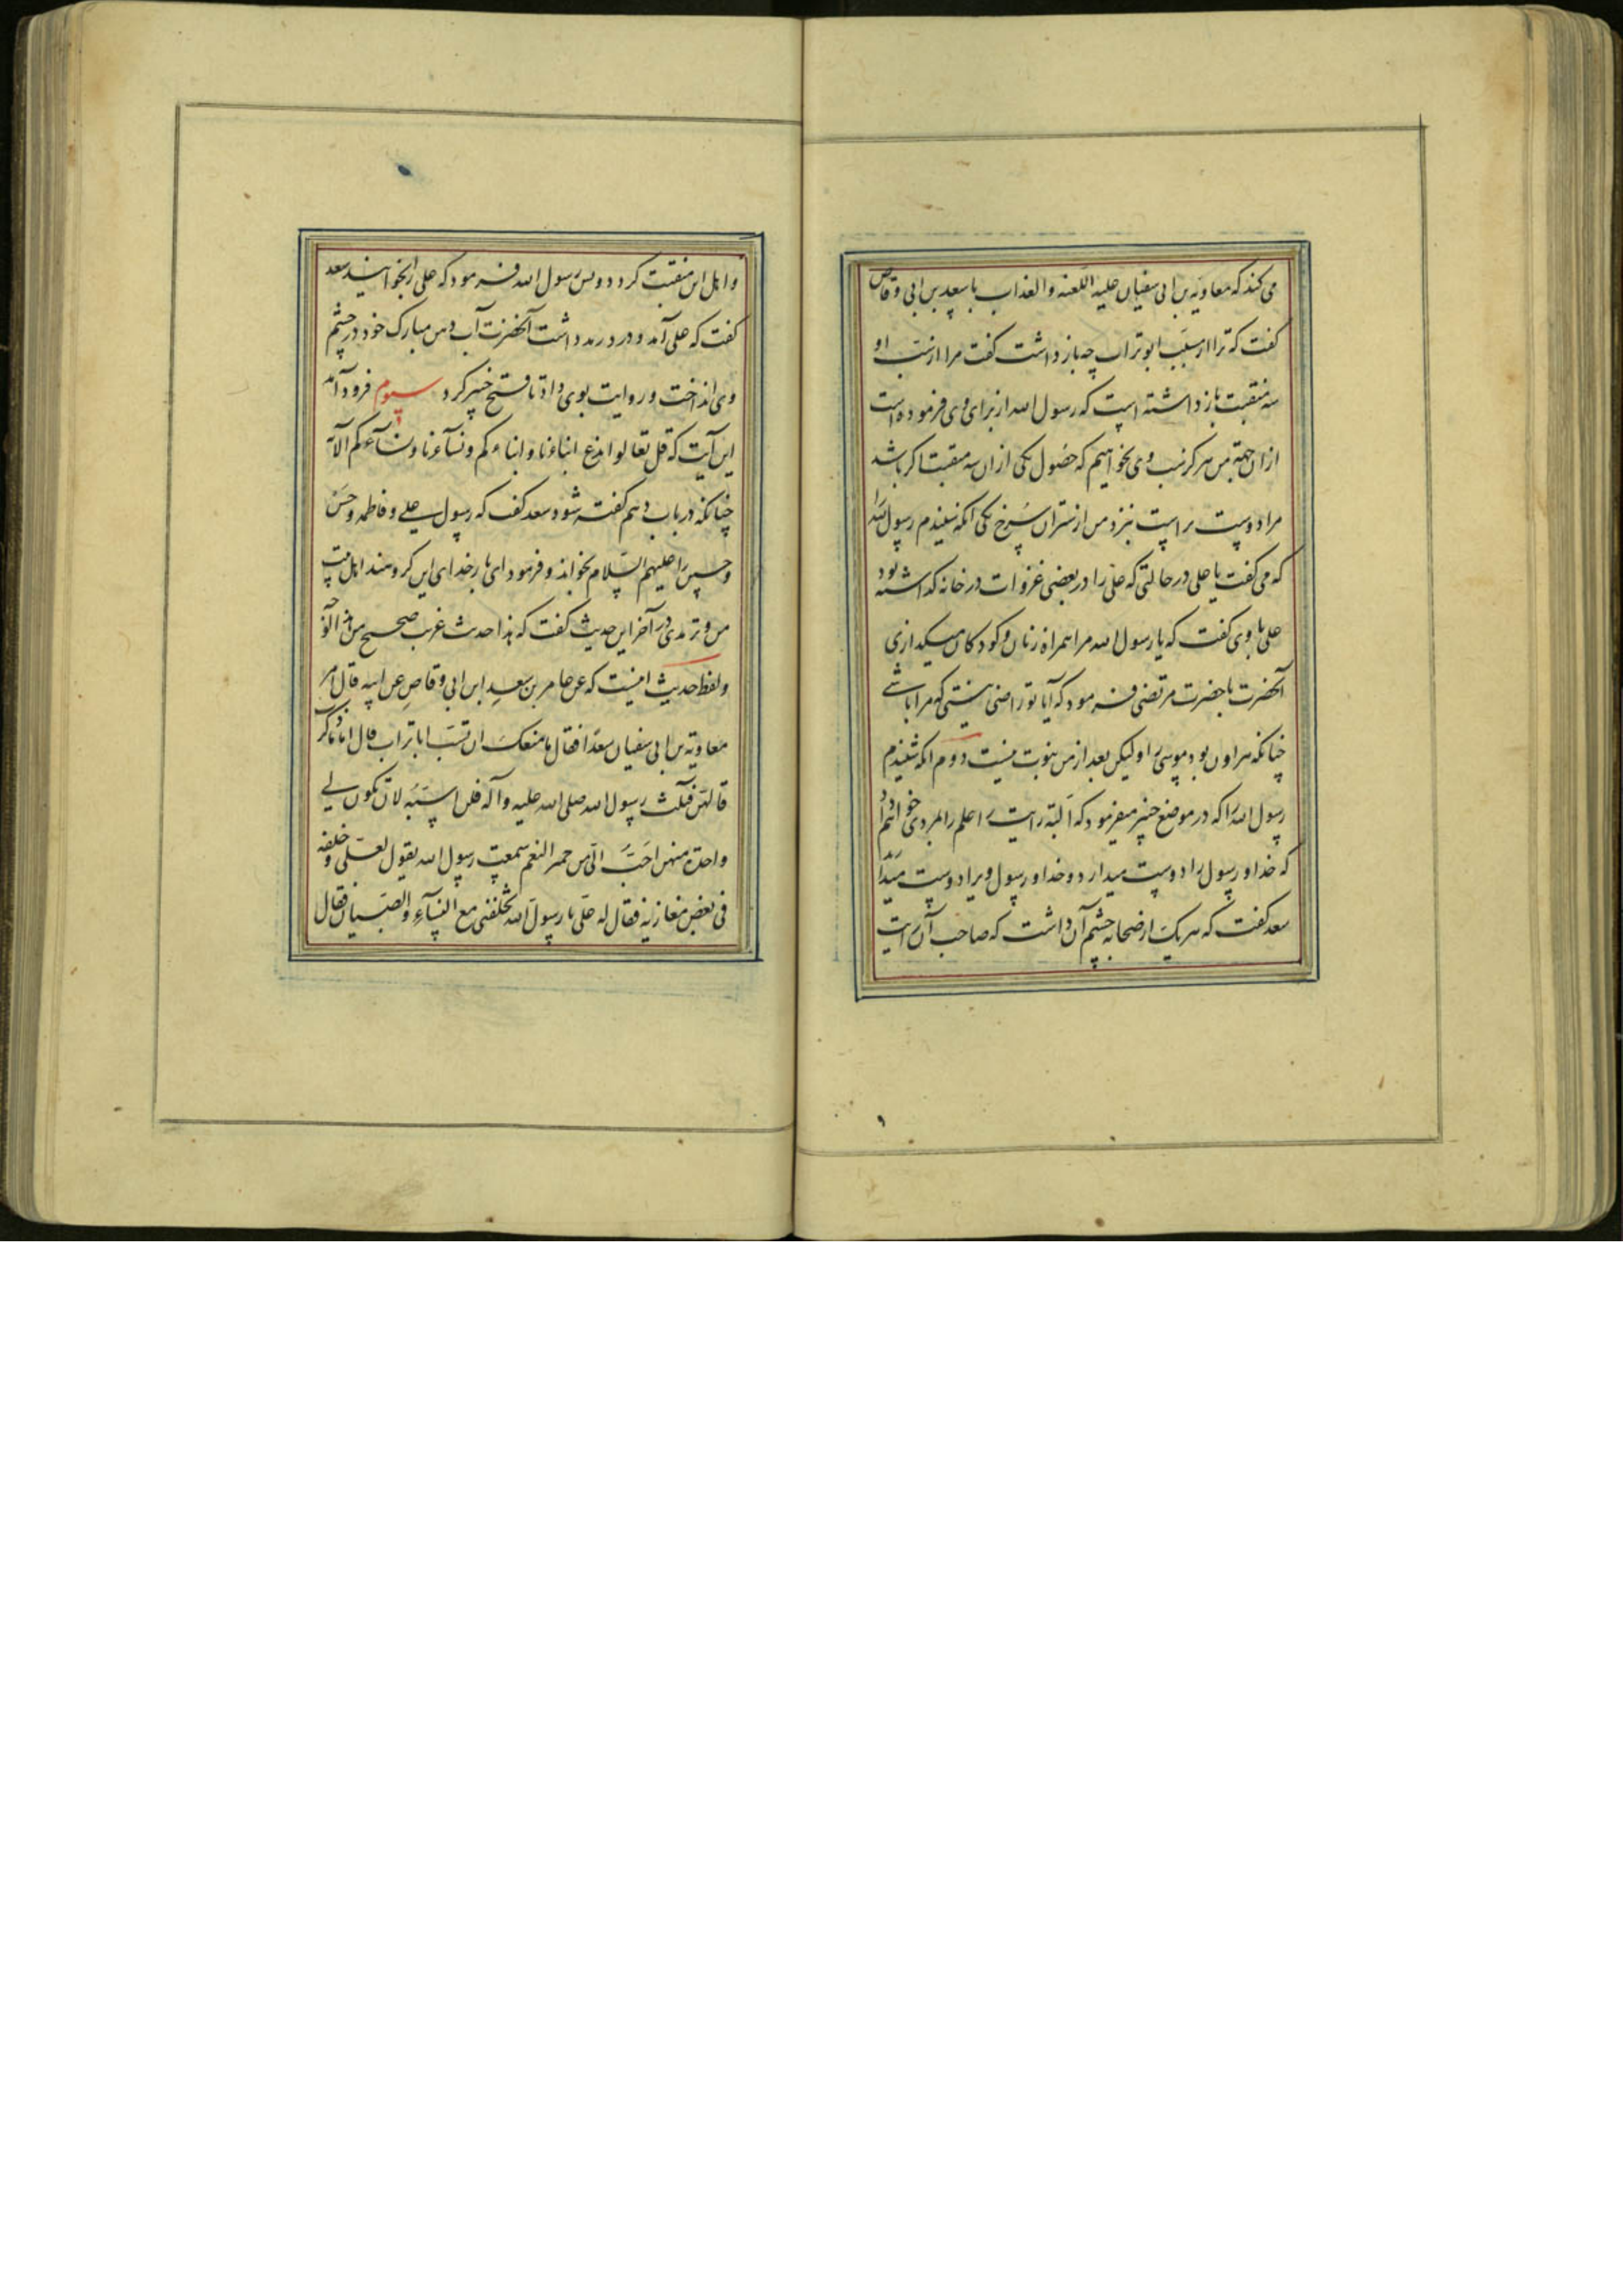 می کند که معاویه بن ابی سفیان علیه اللعنه و العذاب با سعد بن ابی وقاص
گفت که ترا از سبب ابوتراب چه باز داشت گفت مرا از سَبّ او
سه منقبت باز داشته است که رسول الله از برای وی فرموده است
از آن جهة من هرگز سب وی نخواهم که حصول یکی از آن سه منقبت اگر باشد
مرا دوست تر است نزد من از شتران سُرخ یکی آنکه شنیدم رسول الله را
که می گفت یا علی در حالتی که علی را در بعضی غزوات در خانه گذاشته بود
علی با وی گفت که یا رسول الله مرا همراه زنان و کودکان میگذاری
آنحضرت با حضرت مرتضی فرمود که آیا تو راضی نیستی که مرا باشی
چنانکه هراون بود موسی را و لیکن بعد از من نبوت نیست دوم آنکه شنیدم
رسول الله را که در موضع خیبر میفرمود که اَلبته رایت را علم را بمردی خواهم داد
که خدا و رسول را دوست میدارد و خدا و رسول ویرا دوست میدارد
سعد گفت که هر یک از صحابه چشم آن داشت که صاحب آن رایت
و اهل این منقبت گردد و پس رسول الله فرمود که علی را بخوانید سعد
گفت که علی آمد و درد رمد داشت آنحضرت آب دهن مبارک خود در چشم
وی انداخت و روایت بوی داد تا فتح خیبر کرد سیوم فرود آمد
این آیت که قل تعالوا ندع ابناءنا و ابناءکم و نسآءنا و نسآءکم الآیه
چنانکه در باب دهم گفته شود سعد گفت که رسول علی و فاطمه و حسن
و حسین را علیهم السّلام بخواند و فرمود ای بار خدای این گروهند اهل بیت
من و ترمدی در آخر این حدیث گفت که هذا حدیث غریب صحیح من هذا الوجه
و لفظ حدیث اینست که عن عامر بن سعدِ ابن ابی وقاصِ عن ابیه قال امر
معاویَة بن ابی سفیان سعدًا فقال ما منعکَ ان تسُبّ اباتراب قال اما ما ذکرت
قالهنّ ثلث رسول الله صلی الله علیه و آله فلن اسبّه لان تکون لی
واحدة منهن احَبُّ الیّ من حمر النعم سمعت رسول الله یقول لعلی و خلفه
فی بعض مغازیه فقال له علی یا رسول الله تخلفنی مع النسآءِ و الصبیان فقال